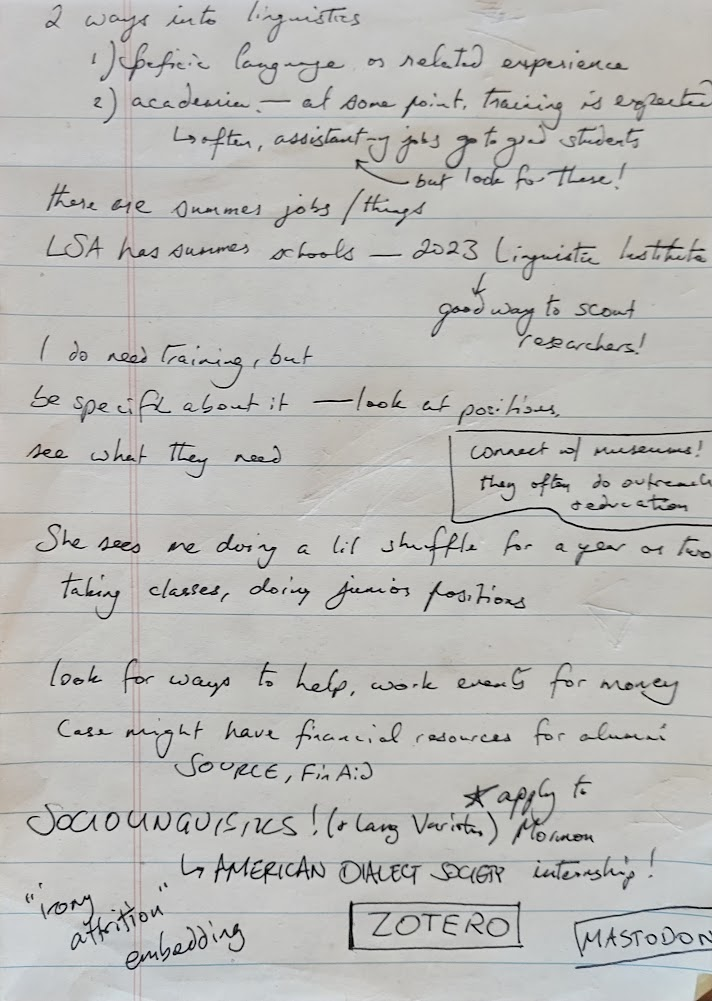 2 ways into linguistics
1) specific language or related experience
2) academia — at some point, training is expected
↳ often, assistant-y jobs go to grad students
but look for these!
there are summer jobs / things
LSA has summer schools — 2023 Linguistic Institute
↓
good way to scout
researchers!
I do need training, but
be specific about it — look at positions,
see what they need
connect w/ museums!
they often do outreach
+ education
She sees me doing a lil shuffle for a year or two
taking classes, doing junior positions
look for ways to help, work events for money
Case might have financial resources for alumni
SOURCE, FinAid
★ apply to
SOCIOLINGUISTICS! (+ Lang Varieties) Mormon
↳ AMERICAN DIALECT SOCIETY internship!
"irony
attrition"
embedding
ZOTERO
MASTODON